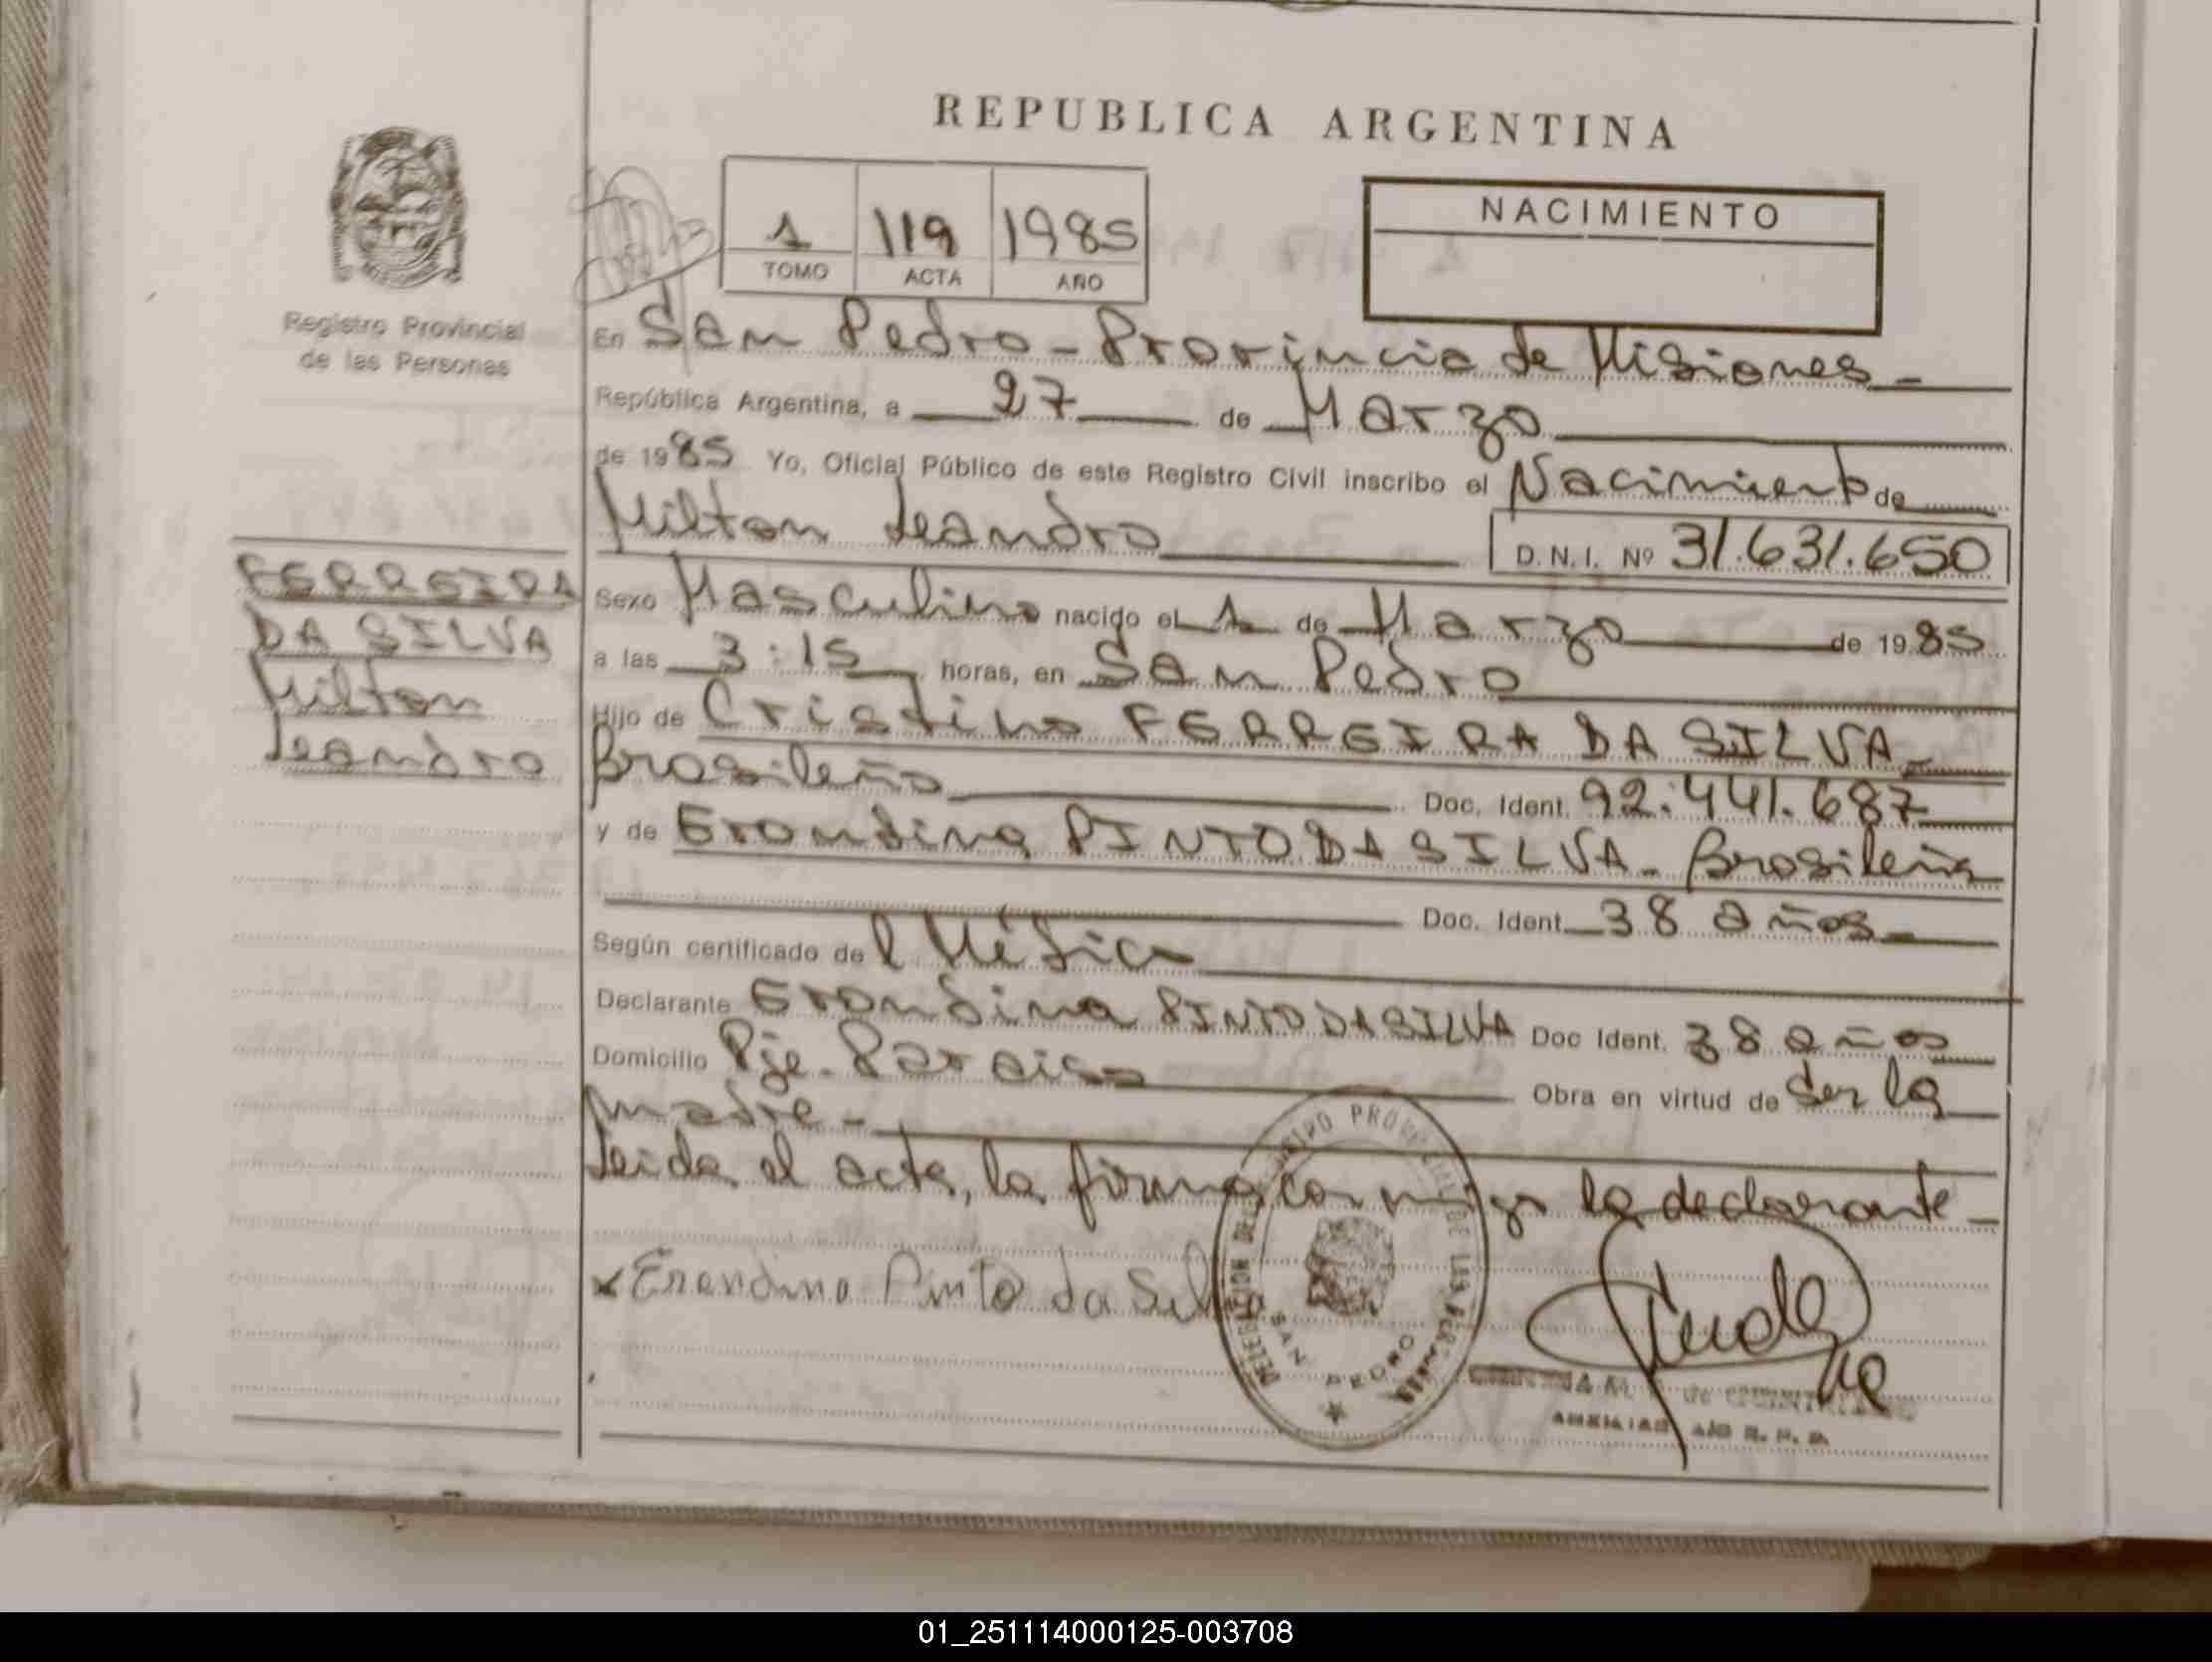 REPUBLICA ARGENTINA
1 119 1985
TOMO ACTA AÑO
NACIMIENTO
Registro Provincial
de las Personas
En San Pedro - Provincia de Misiones -
República Argentina, a 27 de Marzo
de 1985 Yo, Oficial Público de este Registro Civil inscribo el Nacimiento de
Milton Leandro D.N.I. Nº 31.631.650
FERREIRA
DA SILVA
Milton
Leandro
Sexo Masculino nacido el 1 de Marzo de 1985
a las 3:15 horas, en San Pedro
Hijo de Cristino FERREIRA DA SILVA -
Brasileño Doc. Ident. 92.441.687
y de Erondina PINTO DA SILVA - Brasileña
Doc. Ident. 38 años -
Según certificado de Médico
Declarante Erondina PINTO DA SILVA Doc Ident. 38 años
Domicilio Pje. Paraiso Obra en virtud de Ser la
madre -
Leida el acta, la firma conmigo la declarante -
x Erondina Pinto da Sil
DELEGACION DEL REGISTRO PROVINCIAL DE LAS PERSONAS
SAN PEDRO
AUXILIAR
01_251114000125-003708